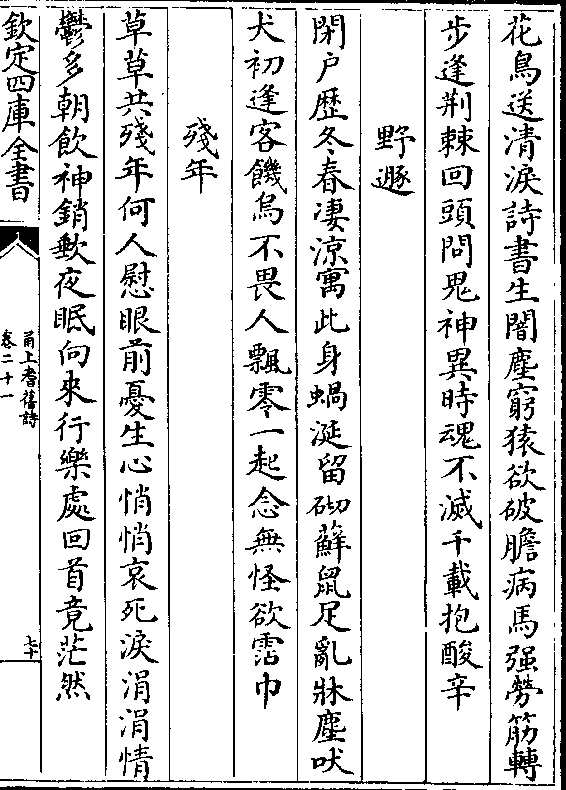 花鳥送清淚詩書生闇塵窮猿欲破膽病馬强勞筋轉
步逢荆棘回頭問鬼神異時魂不滅千載抱酸辛
野遯
閉户歴冬春凄涼寓此身蝸涎留砌蘚鼠足亂牀塵吠
犬初逢客饑烏不畏人飄零一起念無怪欲霑巾
殘年
草草共殘年何人慰眼前憂生心悄悄哀死淚涓涓情
鬱多朝飲神銷歎夜眠向來行樂處回首竟茫然
欽定四庫全書
甬上耆舊詩
卷二十一